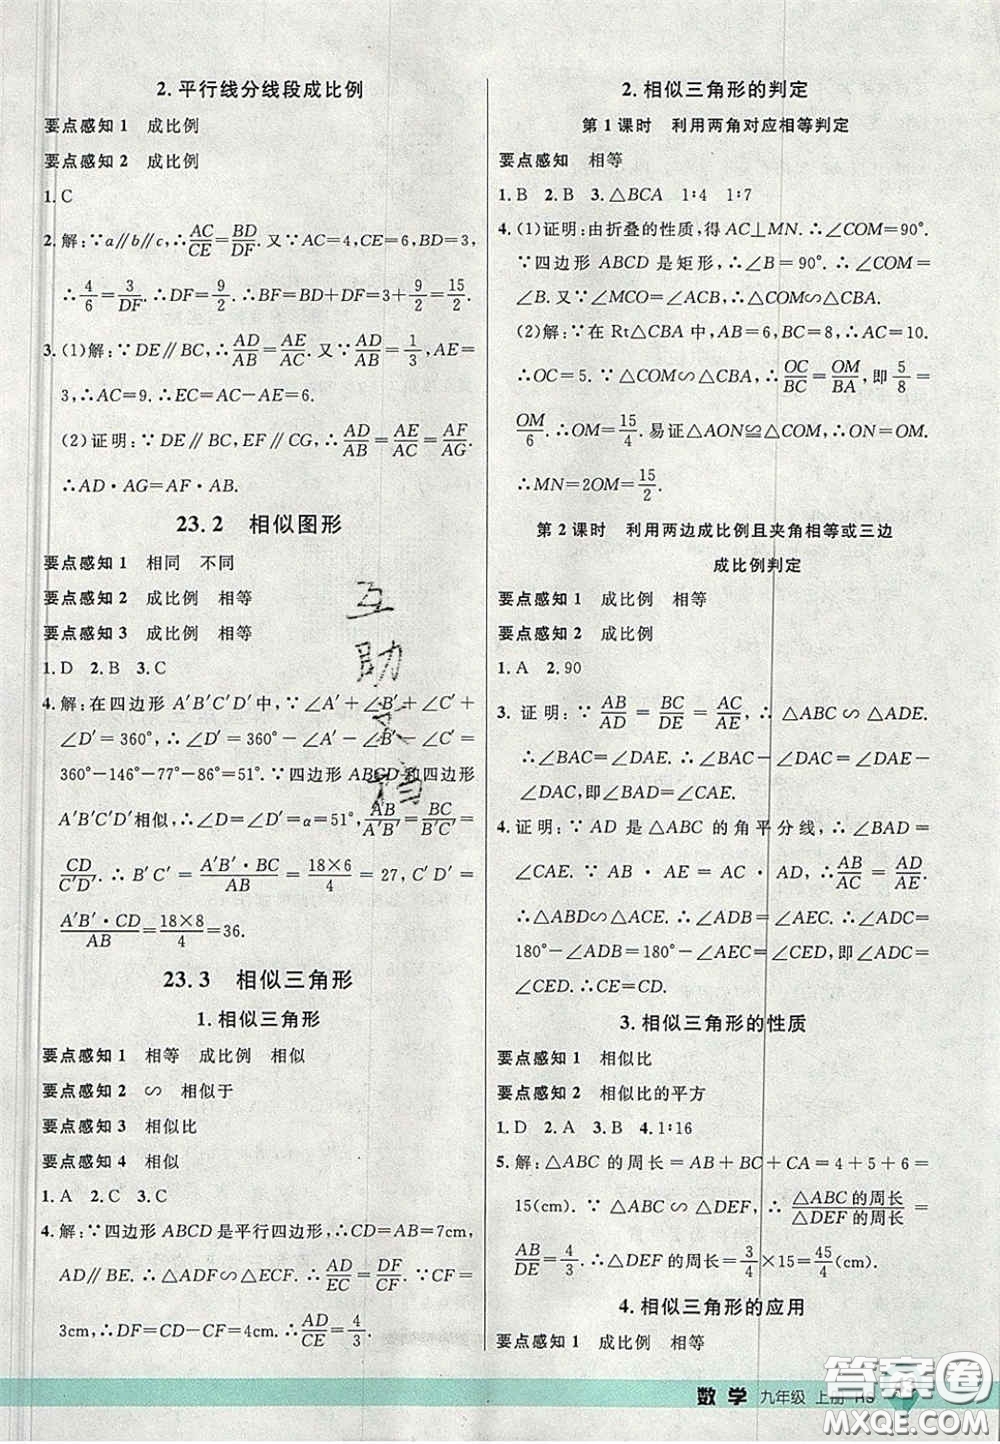 2.平行线分线段成比例
要点感知1 成比例
要点感知2 成比例
1.C
2.解:∵a∥b∥c,∴AC/CE=BD/DF.又∵AC=4,CE=6,BD=3,
∴4/6=3/DF.∴DF=9/2.∴BF=BD+DF=3+9/2=15/2.
3.(1)解:∵DE∥BC,∴AD/AB=AE/AC.又∵AD/AB=1/3,AE=
3,∴AC=9.∴EC=AC-AE=6.
(2)证明:∵DE∥BC,EF∥CG,∴AD/AB=AE/AC=AF/AG.
∴AD·AG=AF·AB.
23.2 相似图形
要点感知1 相同 不同
要点感知2 成比例 相等
要点感知3 成比例 相等
1.D 2.B 3.C
4.解:在四边形A′B′C′D′中,∵∠A′+∠B′+∠C′+
∠D′=360°,∴∠D′=360°-∠A′-∠B′-∠C′=
360°-146°-77°-86°=51°.∵四边形ABCD和四边形
A′B′C′D′相似,∴∠D=∠D′=α=51°,AB/A′B′=BC/B′C′=
CD/C′D′.∴B′C′=A′B′·BC/AB=18×6/4=27,C′D′=
A′B′·CD/AB=18×8/4=36.
23.3 相似三角形
1.相似三角形
要点感知1 相等 成比例 相似
要点感知2 ∽ 相似于
要点感知3 相似比
要点感知4 相似
1.A 2.C 3.C
4.解:∵四边形ABCD是平行四边形,∴CD=AB=7cm,
AD∥BE.∴△ADF∽△ECF.∴AD/EC=DF/CF.∵CF=
3cm,∴DF=CD-CF=4cm.∴AD/CE=4/3.
2.相似三角形的判定
第1课时 利用两角对应相等判定
要点感知 相等
1.B 2.B 3.△BCA 1∶4 1∶7
4.(1)证明:由折叠的性质,得AC⊥MN.∴∠COM=90°.
∵四边形ABCD是矩形,∴∠B=90°.∴∠COM=
∠B.又∵∠MCO=∠ACB,∴△COM∽△CBA.
(2)解:∵在Rt△CBA中,AB=6,BC=8,∴AC=10.
∴OC=5.∵△COM∽△CBA,∴OC/BC=OM/BA,即5/8=
OM/6.∴OM=15/4.易证△AON≌△COM,∴ON=OM.
∴MN=2OM=15/2.
第2课时 利用两边成比例且夹角相等或三边
成比例判定
要点感知1 成比例 相等
要点感知2 成比例
1.A 2.90
3.证明:∵AB/AD=BC/DE=AC/AE,∴△ABC∽△ADE.
∴∠BAC=∠DAE.∴∠BAC-∠DAC=∠DAE-
∠DAC,即∠BAD=∠CAE.
4.证明:∵AD是△ABC的角平分线,∴∠BAD=
∠CAE.∵AB·AE=AC·AD,∴AB/AC=AD/AE.
∴△ABD∽△ACE.∴∠ADB=∠AEC.∴∠ADC=
180°-∠ADB=180°-∠AEC=∠CED,即∠ADC=
∠CED.∴CE=CD.
3.相似三角形的性质
要点感知1 相似比
要点感知2 相似比的平方
1.D 2.A 3.B 4.1∶16
5.解:△ABC的周长=AB+BC+CA=4+5+6=
15(cm).∵△ABC∽△DEF,∴△ABC的周长/△DEF的周长=
AB/DE=4/3.∴△DEF的周长=3/4×15=45/4(cm).
4.相似三角形的应用
要点感知1 成比例 相等
数学 九年级 上册 HS
互助文档
答案圈
MXQE.COM